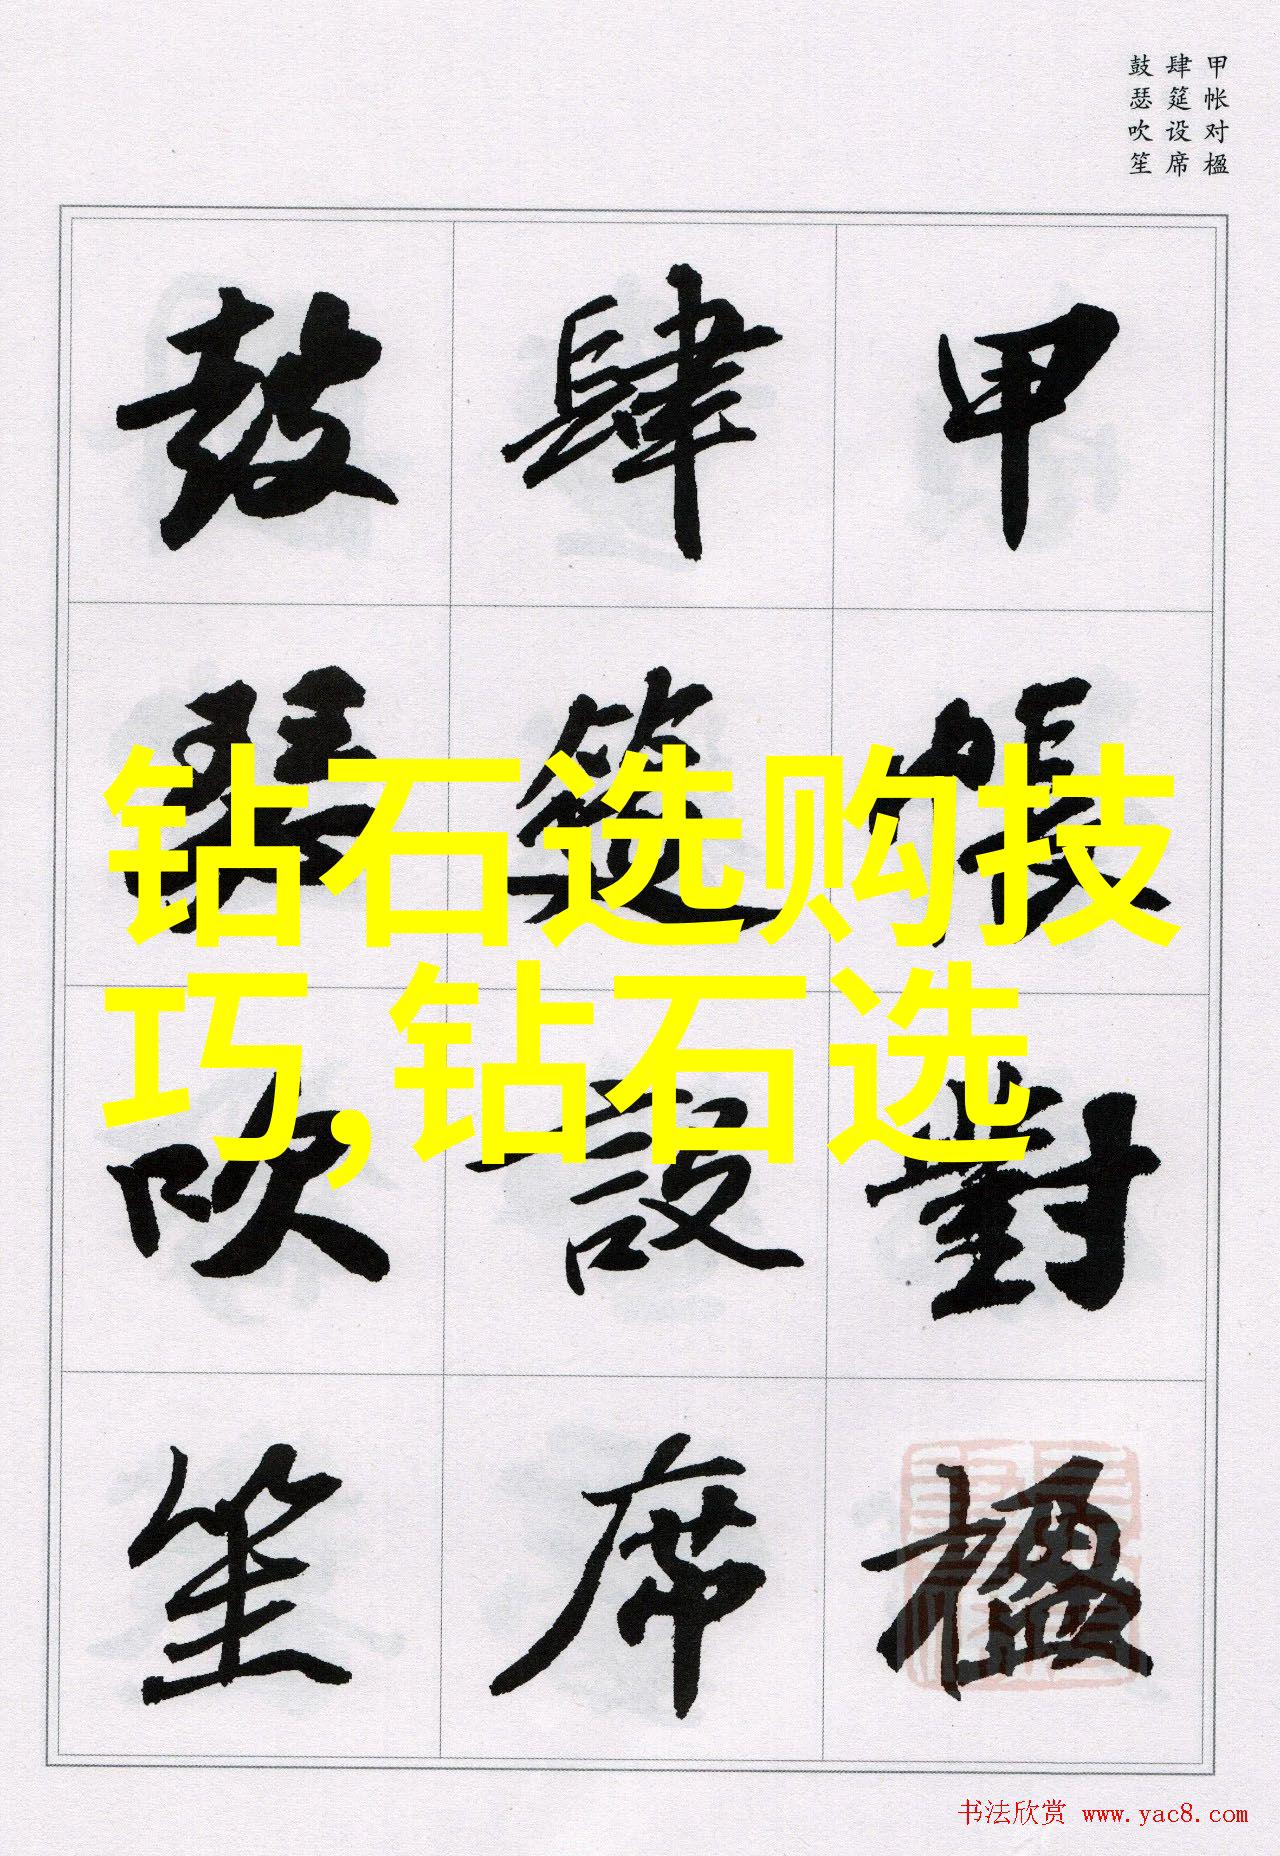 甲帐对楹
肆筵设席
鼓瑟吹笙
甲帳對楹
肆筵設席
鼓瑟吹笙
钻石选购技
巧,钻石选
书法欣赏 www.yac8.com